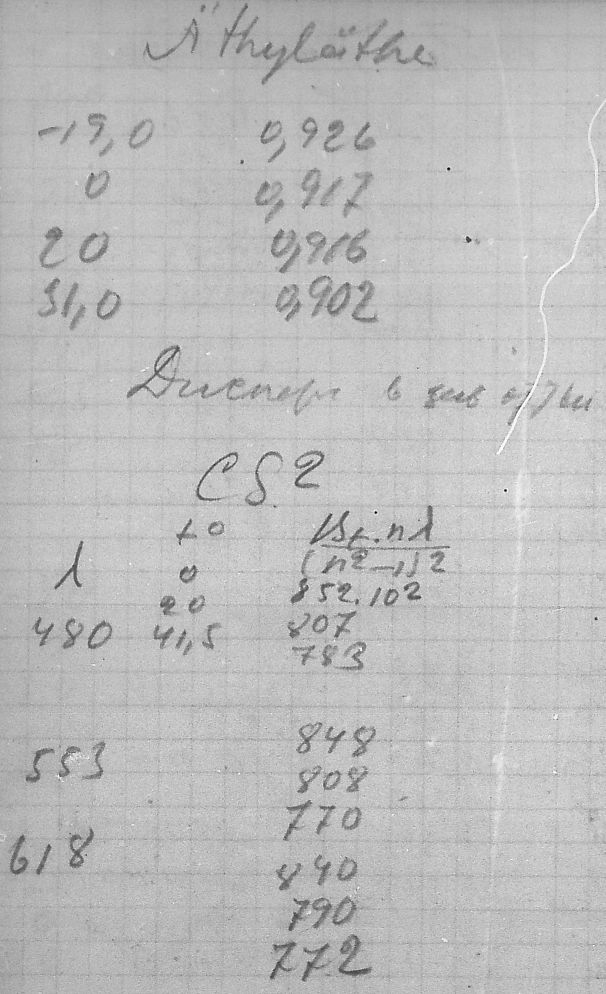 Äthyläthe
-19,0 0,926
0 0,917
20 0,916
31,0 0,902
Дисперс в
CS2
t°
λ 0 (n²-1)²
20 852.10²
480 41,5 807
783
848
553 808
770
618 840
790
772